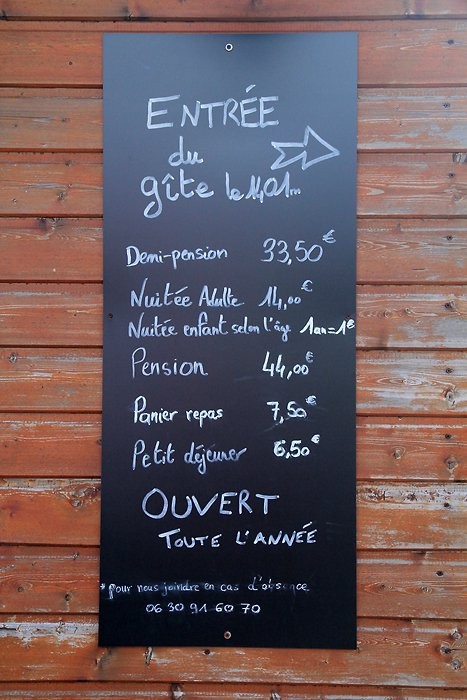 ENTRÉE
du
gîte le 1401m
Demi-pension 33,50€
Nuitée Adulte 14,00€
Nuitée enfant selon l'âge 1an=1€
Pension 44,00€
Panier repas 7,50€
Petit déjeuner 6,50€
OUVERT
TOUTE L'ANNÉE
*pour nous joindre en cas d'absence
06 30 91 60 70